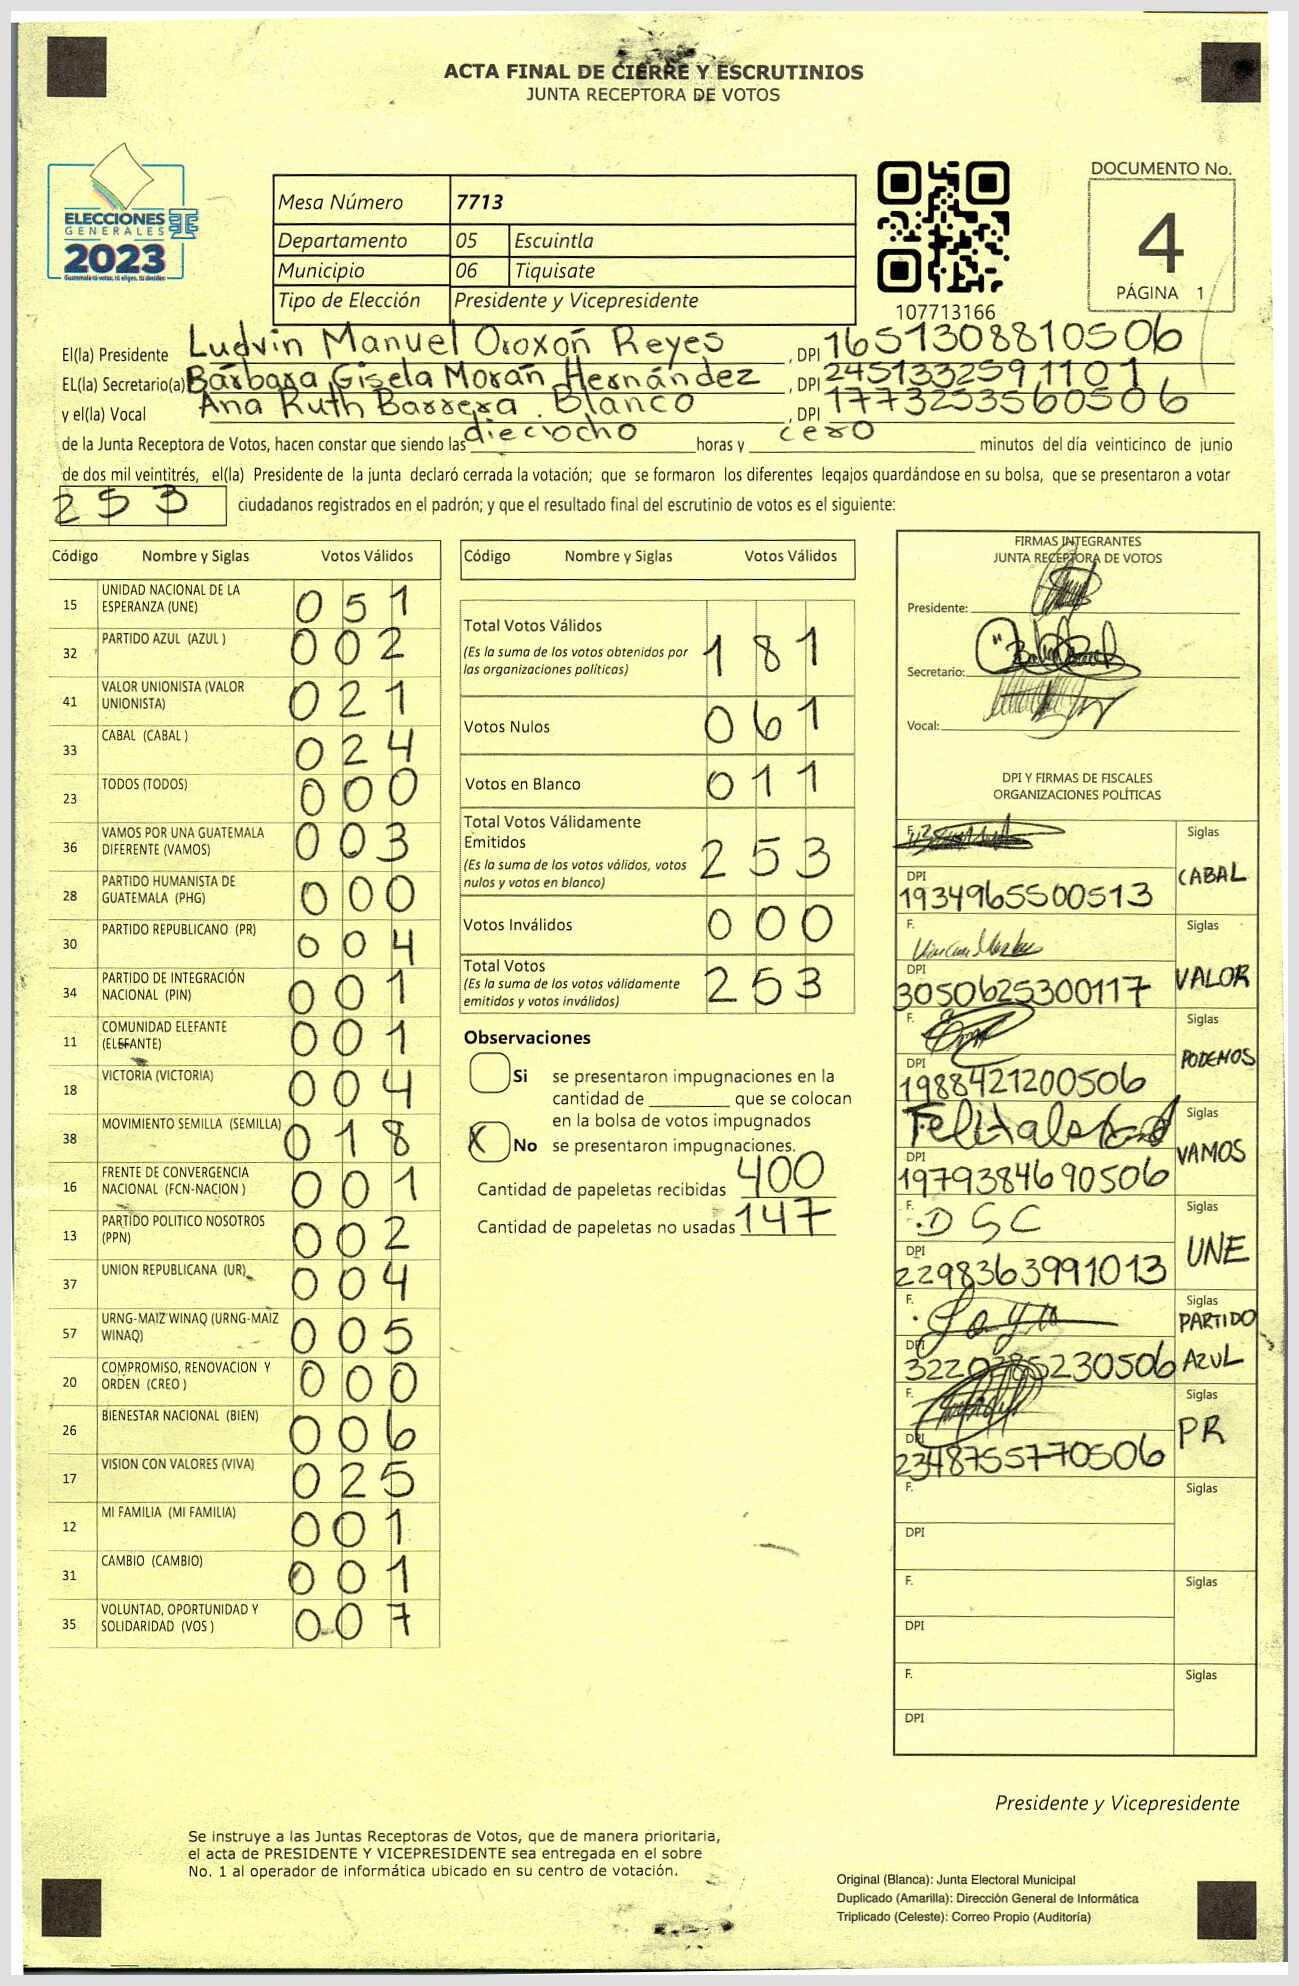 ACTA FINAL DE CIERRE Y ESCRUTINIOS
JUNTA RECEPTORA DE VOTOS
ELECCIONES
GENERALES
2023
Guatemala tú votas, tú eliges, tú decides
Mesa Número 7713
Departamento 05 Escuintla
Municipio 06 Tiquisate
Tipo de Elección Presidente y Vicepresidente
107713166
DOCUMENTO No.
4
PÁGINA 1
El(la) Presidente Ludvin Manuel Oroxon Reyes, DPI 1651308810506
EL(la) Secretario(a) Bárbara Gisela Morán Hernández, DPI 2451332591101
y el(la) Vocal Ana Ruth Barrera Blanco, DPI 1773253560506
de la Junta Receptora de Votos, hacen constar que siendo las dieciocho horas y cero minutos del día veinticinco de junio
de dos mil veintitrés, el(la) Presidente de la junta declaró cerrada la votación; que se formaron los diferentes legajos guardándose en su bolsa, que se presentaron a votar
253 ciudadanos registrados en el padrón; y que el resultado final del escrutinio de votos es el siguiente:
Código Nombre y Siglas Votos Válidos
15 UNIDAD NACIONAL DE LA ESPERANZA (UNE) 051
32 PARTIDO AZUL (AZUL ) 002
41 VALOR UNIONISTA (VALOR UNIONISTA) 021
33 CABAL (CABAL ) 024
23 TODOS (TODOS) 000
36 VAMOS POR UNA GUATEMALA DIFERENTE (VAMOS) 003
28 PARTIDO HUMANISTA DE GUATEMALA (PHG) 000
30 PARTIDO REPUBLICANO (PR) 004
34 PARTIDO DE INTEGRACIÓN NACIONAL (PIN) 001
11 COMUNIDAD ELEFANTE (ELEFANTE) 001
18 VICTORIA (VICTORIA) 004
38 MOVIMIENTO SEMILLA (SEMILLA) 018
16 FRENTE DE CONVERGENCIA NACIONAL (FCN-NACION ) 001
13 PARTIDO POLITICO NOSOTROS (PPN) 002
37 UNION REPUBLICANA (UR) 004
57 URNG-MAIZ WINAQ (URNG-MAIZ WINAQ) 005
20 COMPROMISO, RENOVACION Y ORDEN (CREO ) 000
26 BIENESTAR NACIONAL (BIEN) 006
17 VISION CON VALORES (VIVA) 025
12 MI FAMILIA (MI FAMILIA) 001
31 CAMBIO (CAMBIO) 001
35 VOLUNTAD, OPORTUNIDAD Y SOLIDARIDAD (VOS ) 007
Código Nombre y Siglas Votos Válidos
Total Votos Válidos 181
(Es la suma de los votos obtenidos por
las organizaciones políticas)
Votos Nulos 061
Votos en Blanco 011
Total Votos Válidamente
Emitidos 253
(Es la suma de los votos válidos, votos
nulos y votos en blanco)
Votos Inválidos 000
Total Votos 253
(Es la suma de los votos válidamente
emitidos y votos inválidos)
Observaciones
Si se presentaron impugnaciones en la
cantidad de ________ que se colocan
en la bolsa de votos impugnados
X No se presentaron impugnaciones.
Cantidad de papeletas recibidas 400
Cantidad de papeletas no usadas 147
FIRMAS INTEGRANTES
JUNTA RECEPTORA DE VOTOS
Presidente:
Secretario:
Vocal:
DPI Y FIRMAS DE FISCALES
ORGANIZACIONES POLÍTICAS
F. Siglas
CABAL
DPI
1934965500513
F. Siglas
VALOR
DPI
3050625300117
F. Siglas
PODEMOS
DPI
1988421200506
Siglas
VAMOS
DPI
1979384690506
F. DSC Siglas
UNE
DPI
2298363991013
F. Siglas
PARTIDO
AZUL
DPI
F. Siglas
PR
DPI
2348755770506
F. Siglas
DPI
F. Siglas
DPI
F. Siglas
DPI
Presidente y Vicepresidente
Se instruye a las Juntas Receptoras de Votos, que de manera prioritaria,
el acta de PRESIDENTE Y VICEPRESIDENTE sea entregada en el sobre
No. 1 al operador de informática ubicado en su centro de votación.
Original (Blanca): Junta Electoral Municipal
Duplicado (Amarilla): Dirección General de Informática
Triplicado (Celeste): Correo Propio (Auditoría)